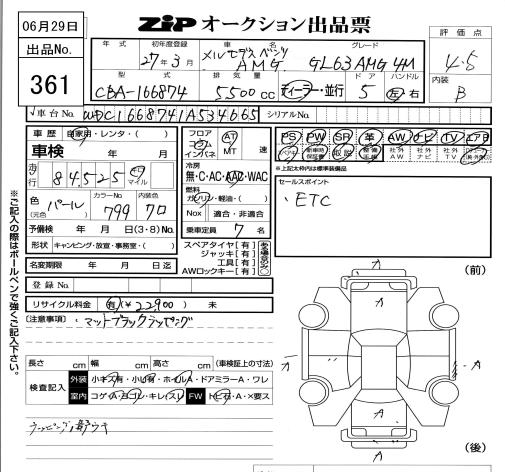 06月29日
出品No.
361
ZIP オークション出品票
評価点
4.5
内装
B
年式 初年度登録 車名 グレード
27年3月 メルセデスベンツ AMG GL63 AMG 4M
型式 排気量 ドア ハンドル
CBA-166874 5500cc ディーラー・並行 5 左 右
車台No. WDC1668741A534665 シリアルNo.
車歴 自家用・レンタ・( )
車検 年 月
走行 84,525 キロ マイル
色(元色) パール カラーNo 799 内装色 クロ
予備検 年 月 日(3・8)No.
形状 キャンピング・放宣・事務室・( )
名変期限 年 月 日迄
登録No.
リサイクル料金 有(¥22,900) 未
フロア コラム インパネ AT MT 速
冷房
無・C・AC・AAC・WAC
燃料
ガソリン・軽油・( )
Nox 適合・非適合
乗車定員 7 名
スペアタイヤ[有]
ジャッキ[有]
工具[有]
AWロックキー[有]
PS PW SR 革 AW ナビ TV エアB
スペアキー 新車時保証書 取説 整備手帳 社外AW 社外ナビ 社外TV
※上記太枠内は標準装備品
セールスポイント
・ETC
(注意事項) ・マットブラックラッピング
長さ cm 幅 cm 高さ cm (車検証上の寸法)
検査記入 外装 小キズ有・小凹有・ホイルA・ドアミラーA・ワレ
室内 コゲA・ヨゴレ・キレ(スレ) FW トビ石・A・×要ス
※ご記入の際はボールペンで強くご記入下さい。
(前)
A
A
A
A
A
(後)